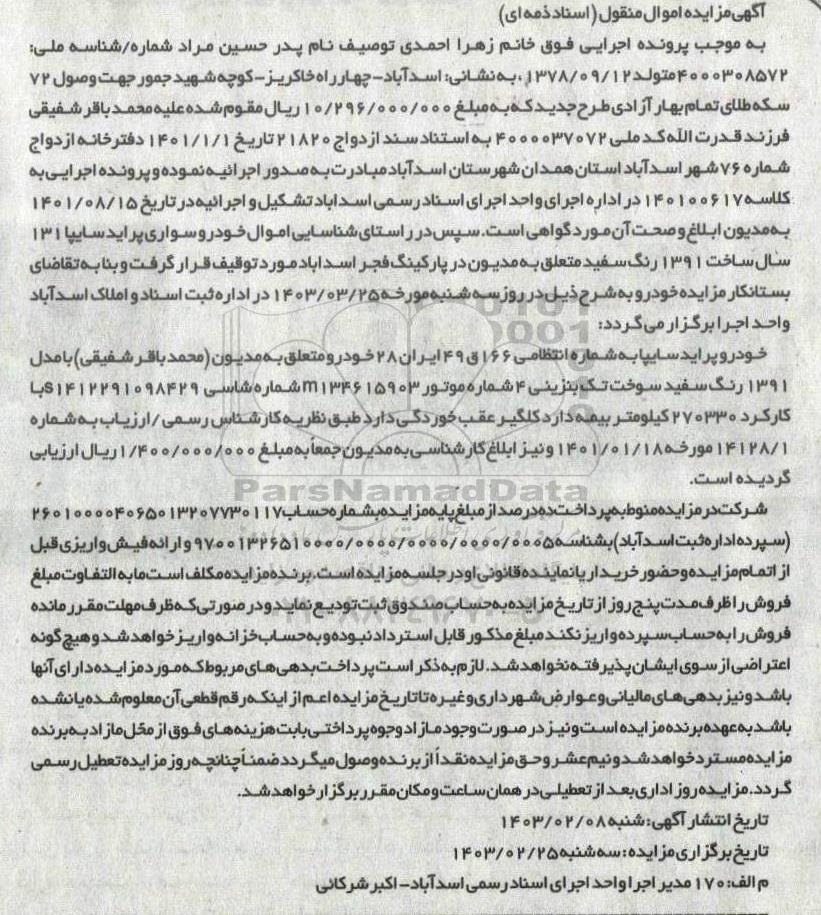 آگهی مزایده اموال منقول (اسناد ذمه ای)
به موجب پرونده اجرایی فوق خانم زهرا احمدی توصیف نام پدر حسین مراد شماره/شناسه ملی:
۴۰۰۰۳۰۸۵۷۲ متولد ۱۳۷۸/۰۹/۱۲، به نشانی: اسدآباد-چهارراه خاکریز-کوچه شهید جمور جهت وصول ۷۲
سکه طلای تمام بهار آزادی طرح جدید که به مبلغ ۱۰/۲۹۶/۰۰۰/۰۰۰ ریال مقوم شده علیه محمد باقر شفیقی
فرزند قدرت الله کد ملی ۴۰۰۰۰۳۷۰۷۲ به استناد سند ازدواج ۲۱۸۲۰ تاریخ ۱۴۰۱/۱/۱ دفترخانه ازدواج
شماره ۷۶ شهر اسدآباد استان همدان شهرستان اسدآباد مبادرت به صدور اجرائیه نموده و پرونده اجرایی به
کلاسه ۱۴۰۱۰۰۶۱۷ در اداره اجرای واحد اجرای اسناد رسمی اسداباد تشکیل و اجرائیه در تاریخ ۱۴۰۱/۰۸/۱۵
به مدیون ابلاغ و صحت آن مورد گواهی است. سپس در راستای شناسایی اموال خودرو سواری پراید سایپا ۱۳۱
سال ساخت ۱۳۹۱ رنگ سفید متعلق به مدیون در پارکینگ فجر اسداباد مورد توقیف قرار گرفت و بنا به تقاضای
بستانکار مزایده خودرو به شرح ذیل در روز سه شنبه مورخه ۱۴۰۳/۰۳/۲۵ در اداره ثبت اسناد و املاک اسدآباد
واحد اجرا برگزار می گردد:
خودرو پراید سایپا به شماره انتظامی ۱۶۶ق۴۹ ایران ۲۸ خودرو متعلق به مدیون (محمد باقر شفیقی) با مدل
۱۳۹۱ رنگ سفید سوخت تک بنزینی ۴ شماره موتور m۱۳۴۶۱۵۹۰۳ شماره شاسی s۱۴۱۲۲۹۱۰۹۸۴۲۹ با
کارکرد ۲۷۰۳۳۰ کیلومتر بیمه دارد کلگیر عقب خوردگی دارد طبق نظریه کارشناس رسمی/ارزیاب به شماره
۱۴۱۲۸/۱ مورخه ۱۴۰۱/۰۱/۱۸ و نیز ابلاغ کارشناسی به مدیون جمعاً به مبلغ ۱/۴۰۰/۰۰۰/۰۰۰ ریال ارزیابی
گردیده است.
ParsNamadData
شرکت در مزایده منوط به پرداخت ده درصد از مبلغ پایه مزایده بشماره حساب ۲۶۰۱۰۰۰۰۴۰۶۵۰۱۳۲۰۷۷۳۰۱۱۷
(سپرده اداره ثبت اسدآباد) بشناسه ۹۷۰۰۱۳۲۶۵۱۰۰۰۰/۰۰۰۰/۰۰۰۰/۰۰۰۰/۰۰۰۵ و ارائه فیش واریزی قبل
از اتمام مزایده و حضور خریدار یا نماینده قانونی او در جلسه مزایده است. برنده مزایده مکلف است مابه التفاوت مبلغ
فروش را ظرف مدت پنج روز از تاریخ مزایده به حساب صندوق ثبت تودیع نماید و در صورتی که ظرف مهلت مقرر مانده
فروش را به حساب سپرده واریز نکند مبلغ مذکور قابل استرداد نبوده و به حساب خزانه واریز خواهد شد و هیچ گونه
اعتراضی از سوی ایشان پذیرفته نخواهد شد. لازم به ذکر است پرداخت بدهی های مربوط که مورد مزایده دارای آنها
باشد و نیز بدهی های مالیاتی و عوارض شهرداری و غیره تا تاریخ مزایده اعم از اینکه رقم قطعی آن معلوم شده یا نشده
باشد به عهده برنده مزایده است و نیز در صورت وجود مازاد وجوه پرداختی بابت هزینه های فوق از محل مازاد به برنده
مزایده مسترد خواهد شد و نیم عشر و حق مزایده نقداً از برنده وصول میگردد ضمناً چنانچه روز مزایده تعطیل رسمی
گردد. مزایده روز اداری بعد از تعطیلی در همان ساعت و مکان مقرر برگزار خواهد شد.
تاریخ انتشار آگهی: شنبه ۱۴۰۳/۰۲/۰۸
تاریخ برگزاری مزایده: سه شنبه ۱۴۰۳/۰۲/۲۵
م الف: ۱۷۰ مدیر اجرا واحد اجرای اسناد رسمی اسدآباد- اکبر شرکائی